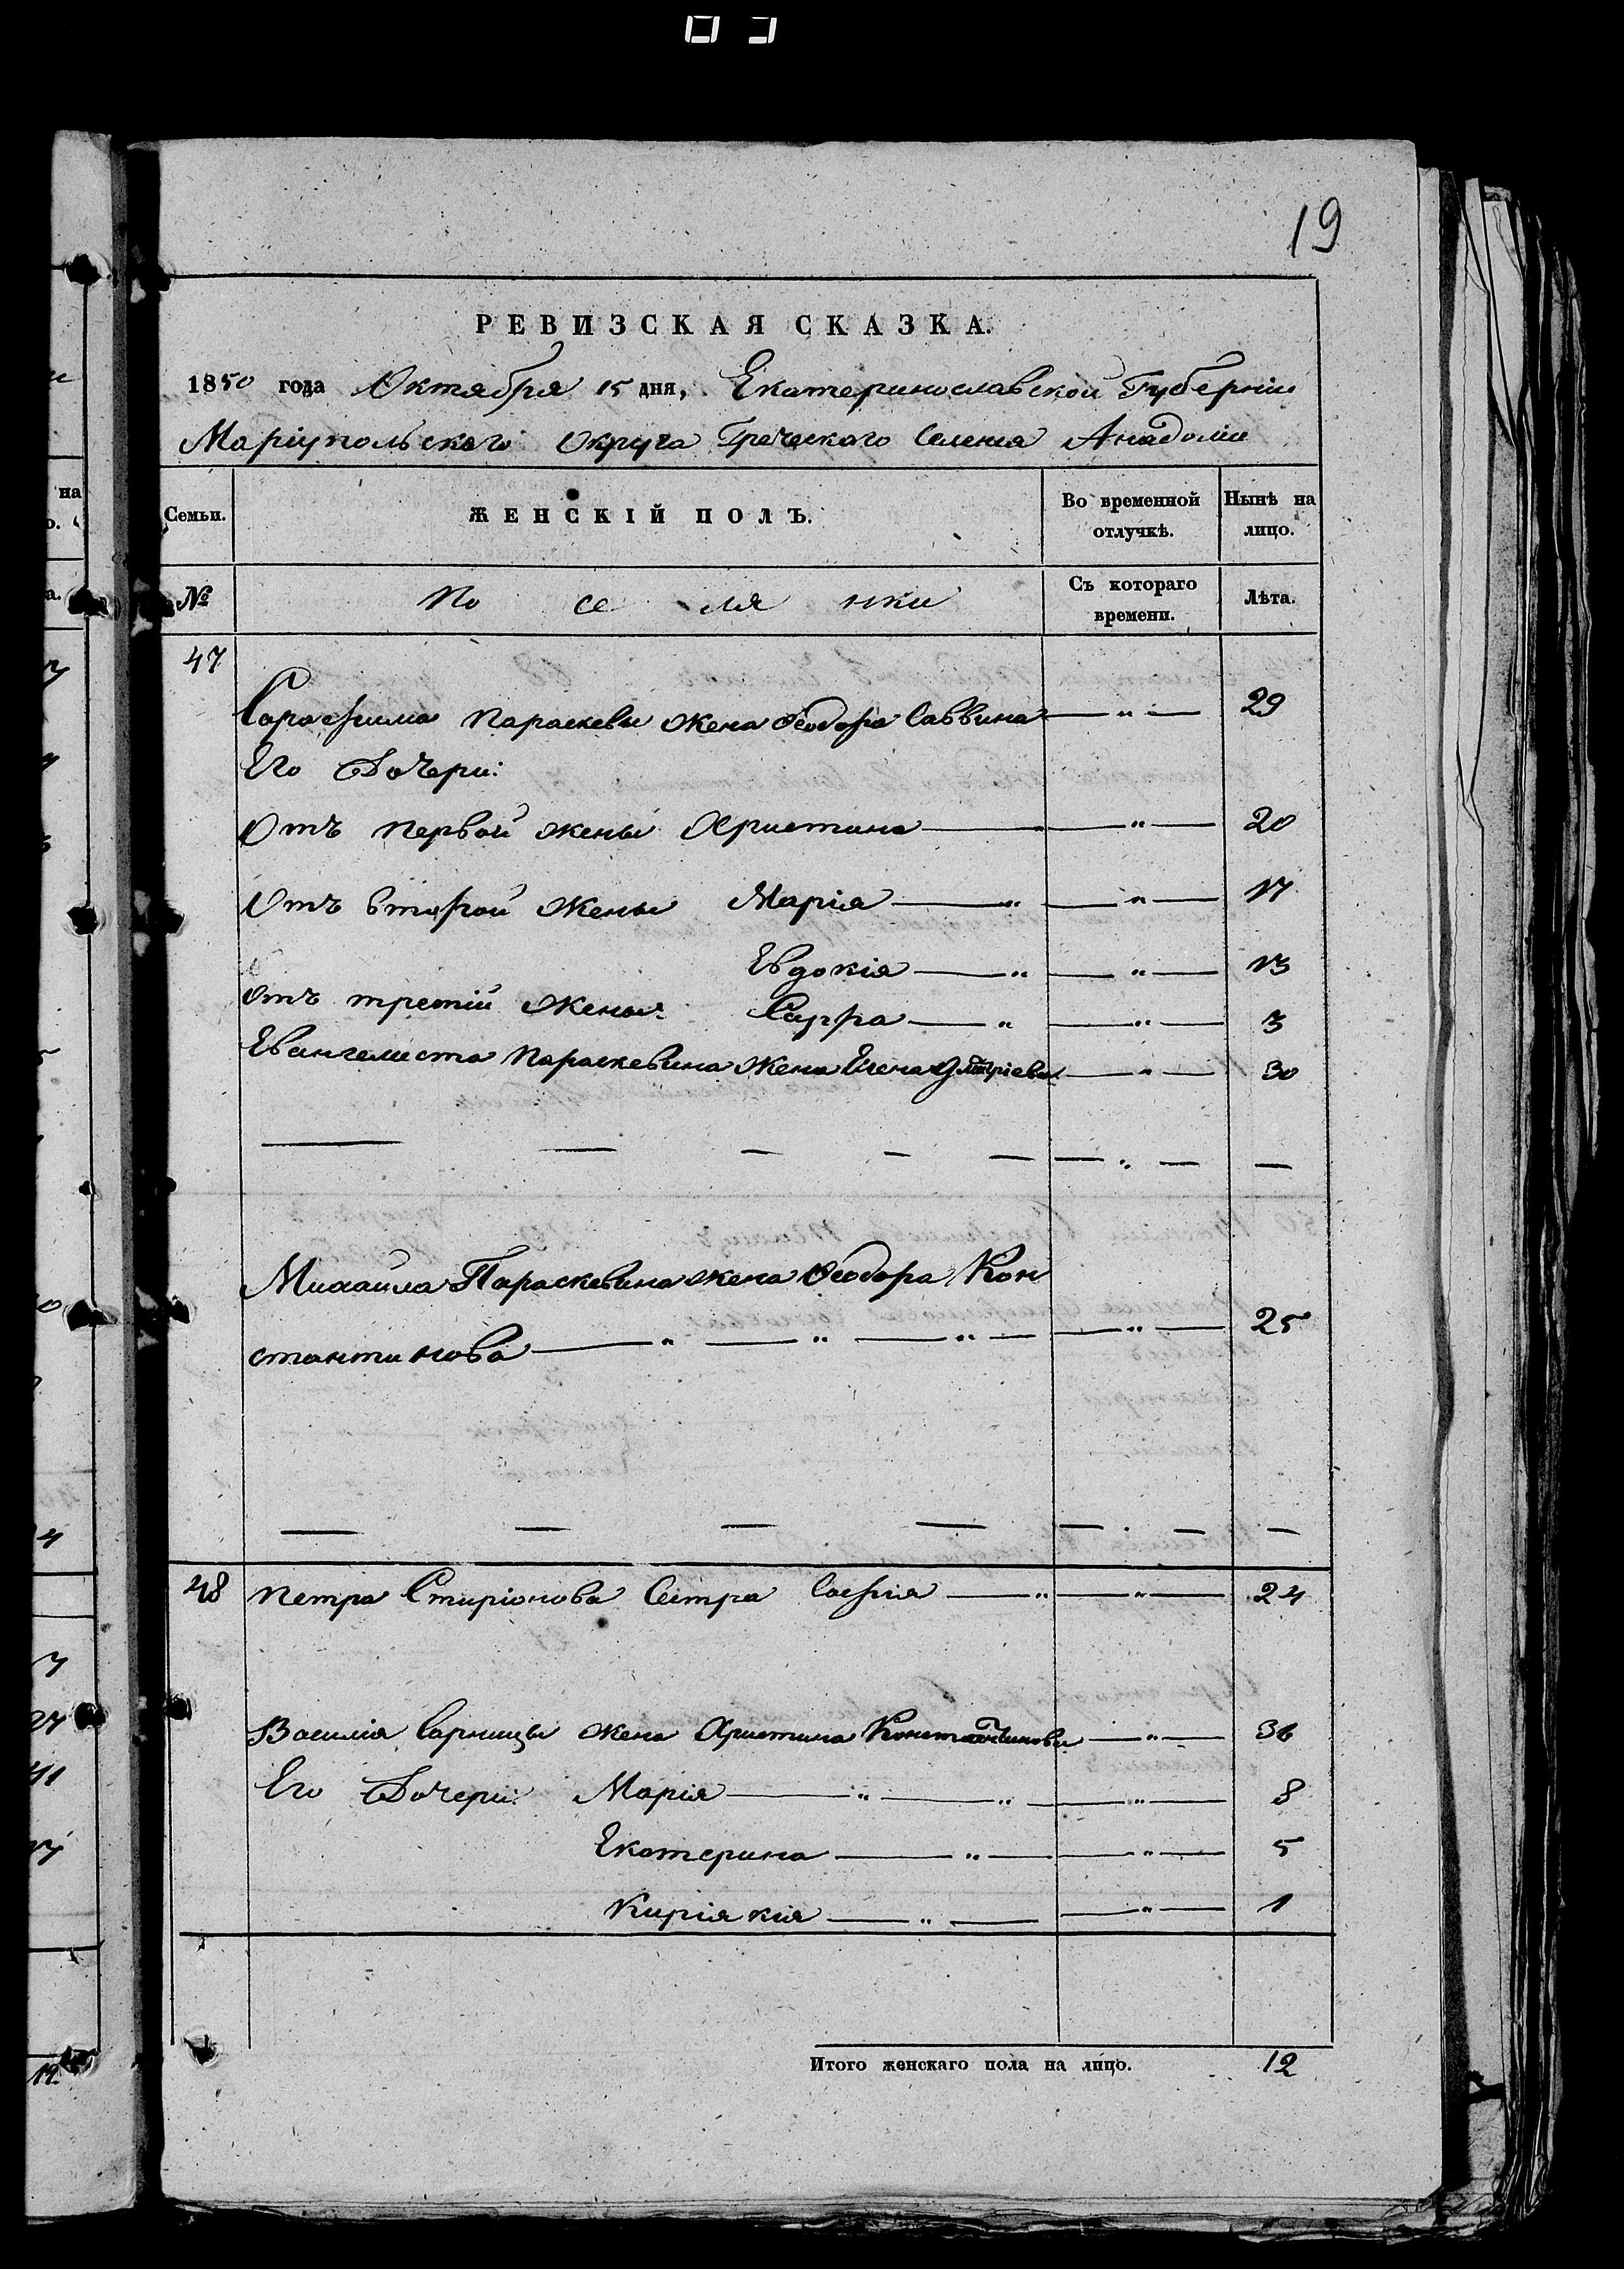 19
РЕВИЗСКАЯ СКАЗКА.
1850 года Октября 15 дня, Екатеринославской Губерніи
Маріупольскаго Округа Греческаго Селенія Анадоліи
Семьи. ЖЕНСКІЙ ПОЛЪ. Во временной отлучкѣ. Нынѣ на лицо.
№ По се ля нки Съ котораго времени. Лѣта.
47
Сарафима Параскевы жена Ѳеодора Саввина — „ — 29
Его Дочери:
Отъ первой жены Христина — „ — 20
Отъ второй жены Марія — „ — „ — 17
Евдокія — „ — „ — 13
Отъ третій жены: Сарра — „ — „ — 3
Евангелиста Параскевина жена Елена Дмитріева — „ — 30
Михаила Параскевина жена Ѳеодора Кон
стантинова — „ — „ — „ — „ — 25
48 Петра Стиріонова Сестра Софія — „ — „ — 24
Василія Сарницы жена Христина Константинова — „ — 36
Его Дочери: Марія — „ — „ — „ — 8
Екатерина — „ — „ — 5
Киріякія — „ — „ — 1
Итого женскаго пола на лицо. 12